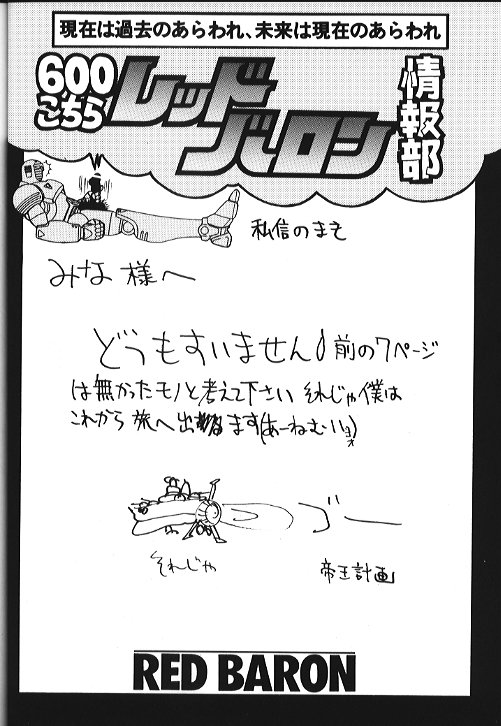 現在は過去のあらわれ、未来は現在のあらわれ
600
こちら
レッド
バロン
情報部
私信のまど
みな様へ
どうもすいません! 前の7ページ
は無かったモノと考えて下さい それじゃ僕は
これから旅へ出ます(あーねむい
ゴー
それじゃ
帝王計画
RED BARON